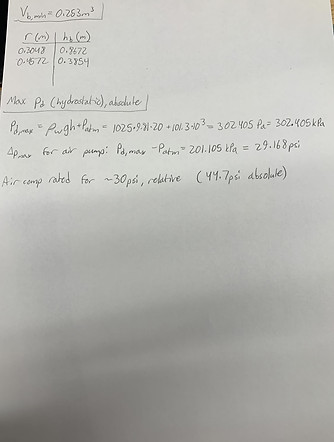 V_b,min = 0.253m³
r (m) h_b (m)
0.3048 0.8672
0.4572 0.3854
Max Pd (hydrostatic), absolute
P_d,max = ρ_w gh + P_atm = 1025·9.81·20 + 101.3·10³ = 302 405 Pa = 302.405 kPa
ΔP_max for air pump: P_d,max - P_atm = 201.105 kPa = 29.168 psi
Air comp rated for ~30psi, relative (44.7psi absolute)